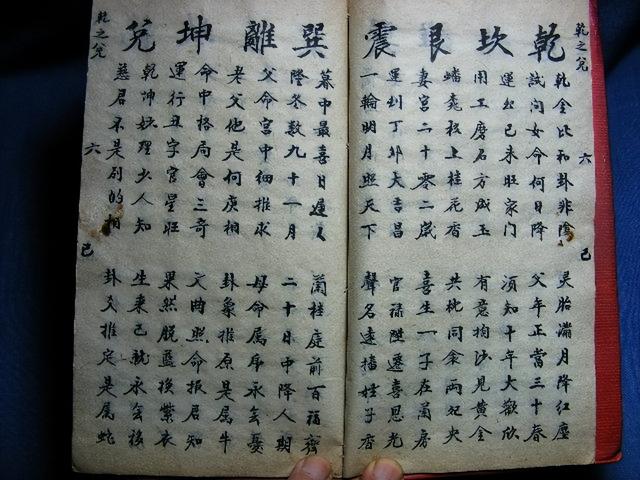 乾之兌 六 巳
乾 坎 艮 震
乾金比和卦非陰 灵胎滿月降红塵
試问女命何日降 父年正當三十春
運 己未旺家门 須知十年大歡欣
用工磨石方成玉 有意掏沙見黄金
蟠 枝上桂花香 共枕同衾两 央
妻宫二十零二歲 喜生一子在蘭房
運到丁卯大吉昌 官禄陞遷喜恩光
一輪明月照天下 聲名遠播姓子香
巽 離 坤 兌
暮中最喜日遲〻 蘭桂庭前百福齊
隆冬数九十一月 二十日中降人期
父命宫中细推求 母命属虎永無憂
老父他是何庚相 卦象推原是属牛
命中格局會三奇 文曲照命报君知
運行丑字官星旺 果然脱蓝换紫衣
乾坤妙理少人知 生来已就永無移
慈君不是别的相 卦爻推定是属蛇
乾之兌 六 巳